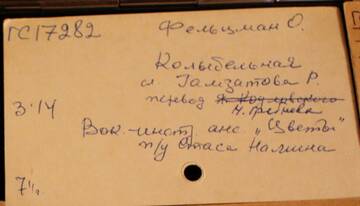 ГС17282 Фельцман О.
Колыбельная
сл Гамзатова Р.
перевод Я. Козловского
Н. Гребнева
3'14
Вок-инстр анс „Цветы"
п/у Стаса Намина